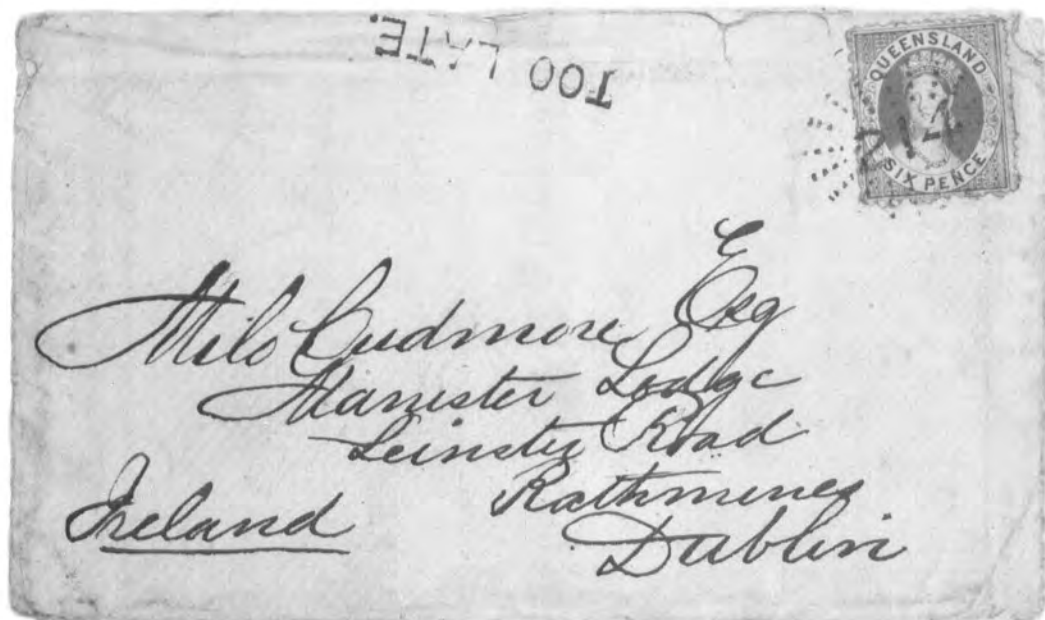 TOO LATE.
QUEENSLAND
SIX PENCE
Milo Cudmore Esq
Manister Lodge
Leinster Road
Rathmines
Dublin
Ireland